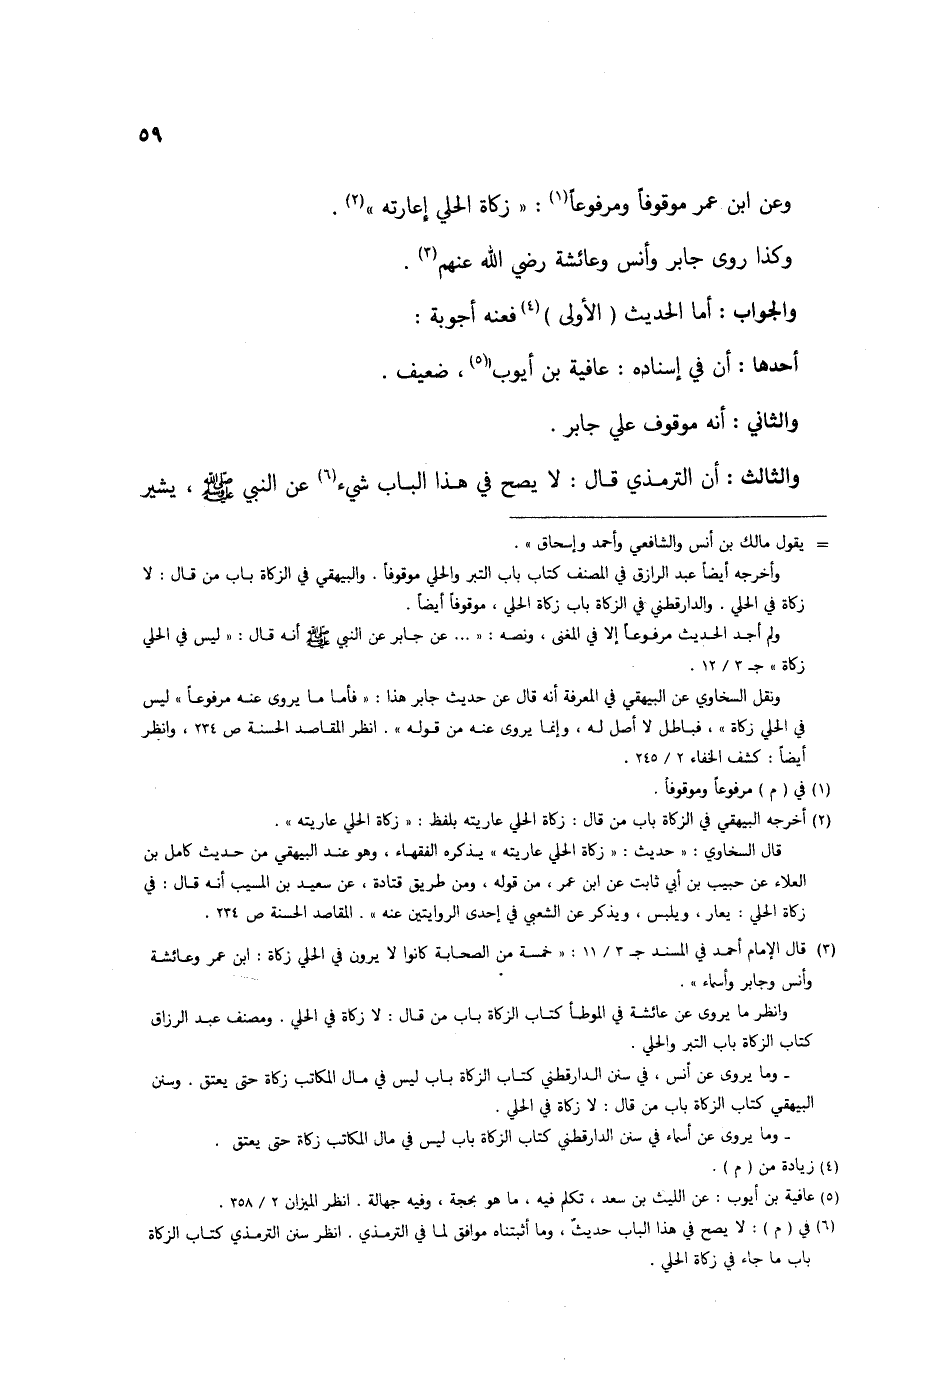 ٥٩
وعن ابن عمر موقوفاً ومرفوعاً(١) : « زكاة الحلي إعارته »(٢) .
وكذا روى جابر وأنس وعائشة رضي الله عنهم(٣) .
والجواب : أما الحديث ( الأولى )(٤) فعنه أجوبة :
أحدها : أن في إسناده : عافية بن أيوب(٥) ، ضعيف .
والثاني : أنه موقوف علي جابر .
والثالث : أن الترمذي قال : لا يصح في هذا الباب شيء(٦) عن النبي ﷺ ، يشير
= يقول مالك بن أنس والشافعي وأحمد وإسحاق » .
وأخرجه أيضاً عبد الرازق في المصنف كتاب باب التبر والحلي موقوفاً . والبيهقي في الزكاة باب من قال : لا
زكاة في الحلي . والدارقطني في الزكاة باب زكاة الحلي ، موقوفاً أيضاً .
ولم أجد الحديث مرفوعاً إلا في المغنى ، ونصه : « ... عن جابر عن النبي ﷺ أنه قال : « ليس في الحلي
زكاة » جـ ٣ / ١٢ .
ونقل السخاوي عن البيهقي في المعرفة أنه قال عن حديث جابر هذا : « فأما ما يروى عنه مرفوعاً » ليس
في الحلي زكاة » ، فباطل لا أصل له ، وإنما يروى عنه من قوله » . انظر المقاصد الحسنة ص ٢٣٤ ، وانظر
أيضاً : كشف الخفاء ٢ / ٢٤٥ .
(١) في ( م ) مرفوعاً وموقوفاً .
(٢) أخرجه البيهقي في الزكاة باب من قال : زكاة الحلي عاريته بلفظ : « زكاة الحلي عاريته » .
قال السخاوي : « حديث : « زكاة الحلي عاريته » يذكره الفقهاء ، وهو عند البيهقي من حديث كامل بن
العلاء عن حبيب بن أبي ثابت عن ابن عمر ، من قوله ، ومن طريق قتادة ، عن سعيد بن المسيب أنه قال : في
زكاة الحلي : يعار ، ويلبس ، ويذكر عن الشعبي في إحدى الروايتين عنه » . المقاصد الحسنة ص ٢٣٤ .
(٣) قال الإمام أحمد في المسند جـ ٣ / ١١ : « خمسة من الصحابة كانوا لا يرون في الحلي زكاة : ابن عمر وعائشة
وأنس وجابر وأسماء » .
وانظر ما يروى عن عائشة في الموطأ كتاب الزكاة باب من قال : لا زكاة في الحلي . ومصنف عبد الرزاق
كتاب الزكاة باب التبر والحلي .
ـ وما يروى عن أنس ، في سنن الدارقطني كتاب الزكاة باب ليس في مال المكاتب زكاة حتى يعتق . وسنن
البيهقي كتاب الزكاة باب من قال : لا زكاة في الحلي .
ـ وما يروى عن أسماء في سنن الدارقطني كتاب الزكاة باب ليس في مال المكاتب زكاة حتى يعتق .
(٤) زيادة من ( م ) .
(٥) عافية بن أيوب : عن الليث بن سعد ، تكلم فيه ، ما هو بحجة ، وفيه جهالة . انظر الميزان ٢ / ٣٥٨ .
(٦) في ( م ) : لا يصح في هذا الباب حديثٌ ، وما أثبتناه موافق لما في الترمذي . انظر سنن الترمذي كتاب الزكاة
باب ما جاء في زكاة الحلي .